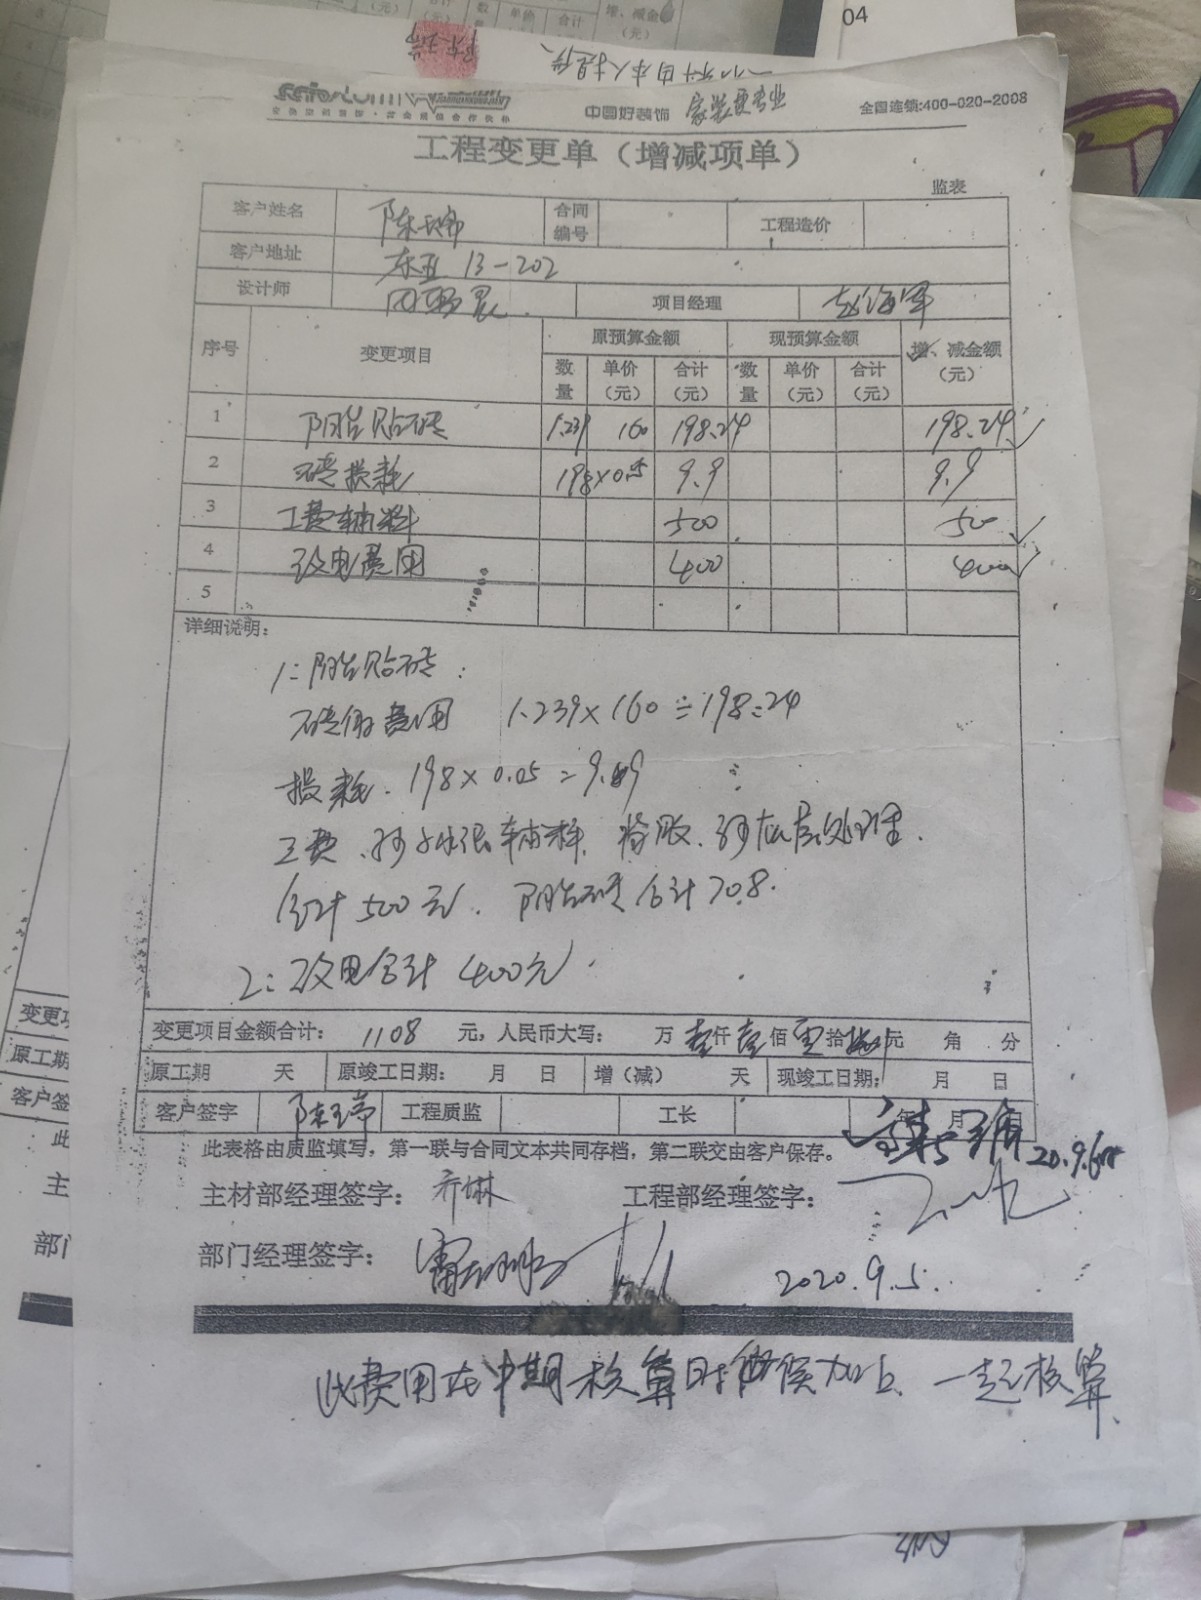 04
中国好装饰 家装更专业
全国连锁:400-020-2008
工程变更单（增减项单）
监表
客户姓名 合同编号 工程造价
客户地址 东亚 13-202
设计师 项目经理 赵海军
序号 变更项目 原预算金额 现预算金额 增、减金额（元）
数量 单价（元） 合计（元） 数量 单价（元） 合计（元）
1 阳台贴砖 1.239 160 198.24 198.24
2 砖损耗 198×0.05 9.9 9.9
3 工费辅料 500 500
4 改电费用 400 400
5
详细说明:
1: 阳台贴砖:
费用 1.239×160=198.24
损耗. 198×0.05=9.9
工费、辅料、处理.
合计500元. 阳台砖合计708.
2: 改电合计 400元.
变更项目金额合计: 1108 元, 人民币大写: 万 壹仟壹佰零拾捌元 角 分
原工期 天 原竣工日期: 月 日 增（减） 天 现竣工日期: 月 日
客户签字 工程质监 工长 年 月 日
此表格由质监填写, 第一联与合同文本共同存档, 第二联交由客户保存。
20.9.6
主材部经理签字: 乔琳 工程部经理签字:
部门经理签字: 2020.9.5.
此费用在中期核算时候加上、一起核算、
变更项
原工期
客户签
此
主
部门